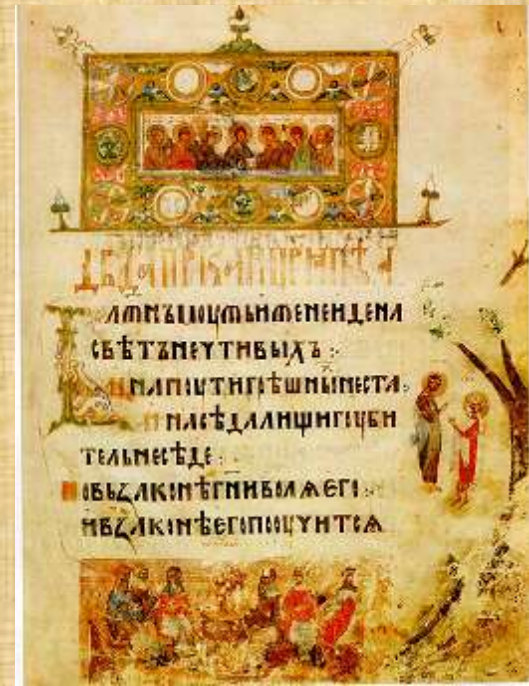 БЛАЖНЪМОУЖЬИЖЕНЕИДЕНА
СВѢТЪНЕЧТИВЫХЪ :
ИНАПОУТИГРѢШНЫНЕСТА.
И НАСѢДАЛИЩИГОУБИ
ТЕЛЬНЕСѢДЕ :
НОВЬЗАКОНѢГНИВОЛѦЕГО :
ИВЗАКОНѢЕГОПООУЧИТСѦ